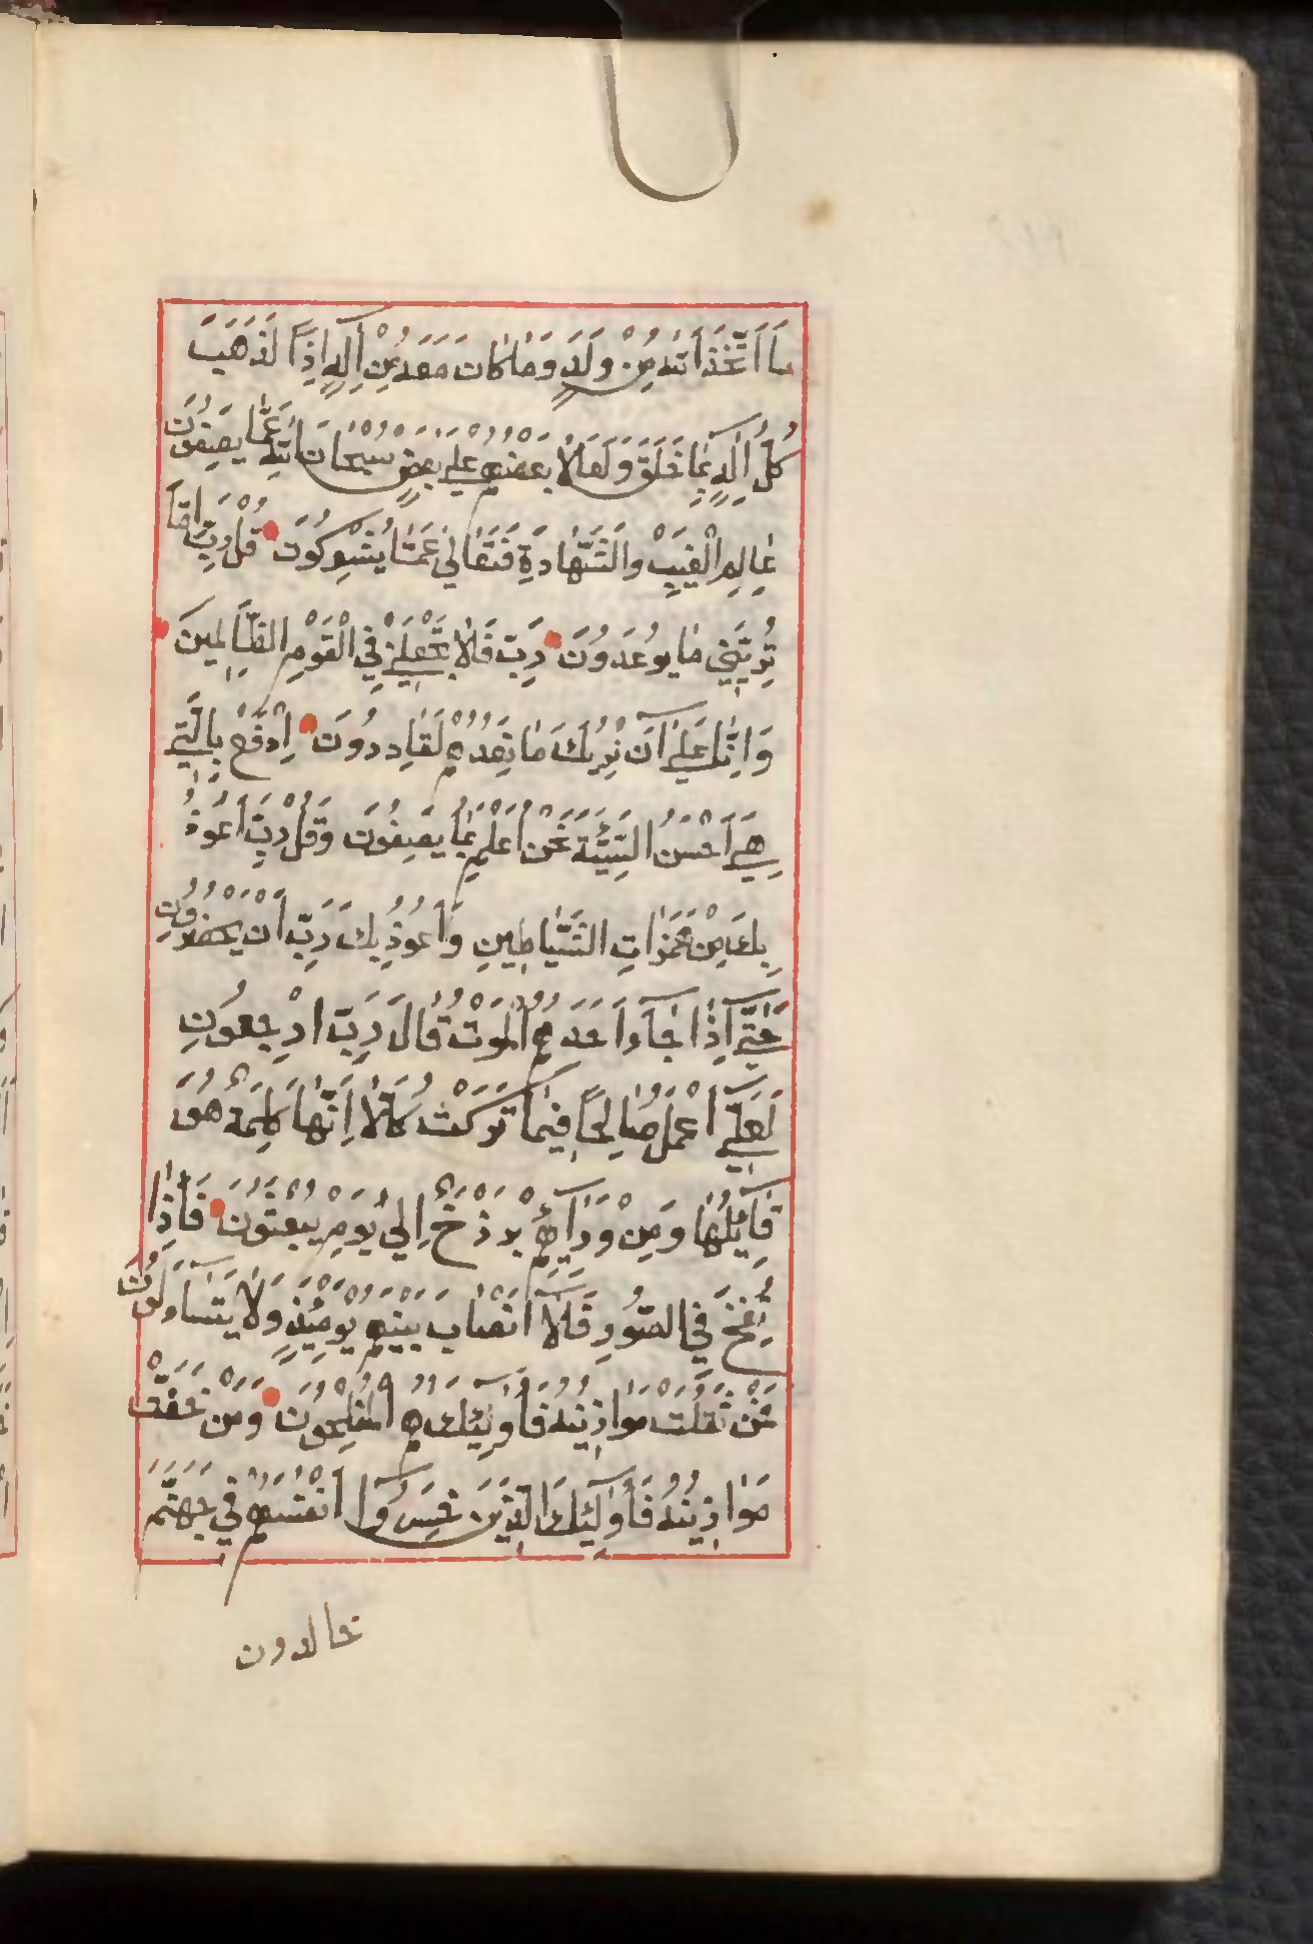 مَا اتَّخَذَ اللهُ مِنْ وَلَدٍ وَمَا كَانَ مَعَهُ مِنْ اِلٰهٍ اِذًا لَذَهَبَ
كُلُّ اِلٰهٍ بِمَا خَلَقَ وَلَعَلَا بَعْضُهُمْ عَلٰى بَعْضٍ سُبْحَانَ اللهِ عَمَّا يَصِفُونَ
عَالِمِ الْغَيْبِ وَالشَّهَادَةِ فَتَعَالٰى عَمَّا يُشْرِكُونَ قُلْ رَبِّ اِمَّا
تُرِيَنِّي مَا يُوعَدُونَ رَبِّ فَلَا تَجْعَلْنِي فِي الْقَوْمِ الظَّالِمِينَ
وَاِنَّا عَلٰى اَنْ نُرِيَكَ مَا نَعِدُهُمْ لَقَادِرُونَ اِدْفَعْ بِالَّتِي
هِيَ اَحْسَنُ السَّيِّئَةَ نَحْنُ اَعْلَمُ بِمَا يَصِفُونَ وَقُلْ رَبِّ اَعُوذُ
بِكَ مِنْ هَمَزَاتِ الشَّيَاطِينِ وَاَعُوذُ بِكَ رَبِّ اَنْ يَحْضُرُونِ
حَتّٰى اِذَا جَآءَ اَحَدَهُمُ الْمَوْتُ قَالَ رَبِّ ارْجِعُونِ
لَعَلِّي اَعْمَلُ صَالِحًا فِيمَا تَرَكْتُ كَلَّا اِنَّهَا كَلِمَةٌ هُوَ
قَائِلُهَا وَمِنْ وَرَائِهِمْ بَرْزَخٌ اِلٰى يَوْمِ يُبْعَثُونَ فَاِذَا
نُفِخَ فِي الصُّورِ فَلَا اَنْسَابَ بَيْنَهُمْ يَوْمَئِذٍ وَلَا يَتَسَاءَلُونَ
فَمَنْ ثَقُلَتْ مَوَازِينُهُ فَاُولٰئِكَ هُمُ الْمُفْلِحُونَ وَمَنْ خَفَّتْ
مَوَازِينُهُ فَاُولٰئِكَ الَّذِينَ خَسِرُوا اَنْفُسَهُمْ فِي جَهَنَّمَ
خالدون